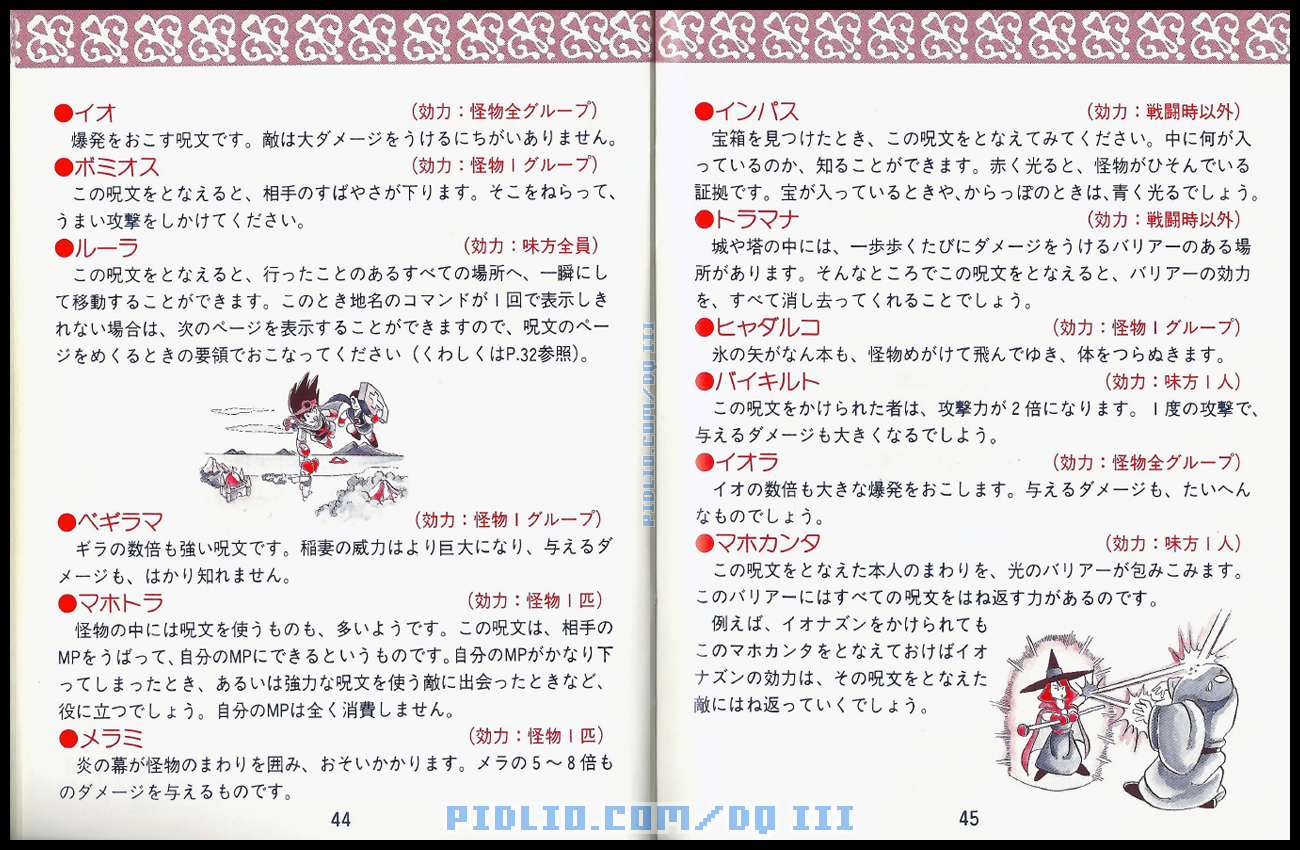 ●イオ (効力：怪物全グループ)
爆発をおこす呪文です。敵は大ダメージをうけるにちがいありません。
●ボミオス (効力：怪物1グループ)
この呪文をとなえると、相手のすばやさが下ります。そこをねらって、
うまい攻撃をしかけてください。
●ルーラ (効力：味方全員)
この呪文をとなえると、行ったことのあるすべての場所へ、一瞬にし
て移動することができます。このとき地名のコマンドが1回で表示しき
れない場合は、次のページを表示することができますので、呪文のペー
ジをめくるときの要領でおこなってください（くわしくはP.32参照）。
●ベギラマ (効力：怪物1グループ)
ギラの数倍も強い呪文です。稲妻の威力はより巨大になり、与えるダ
メージも、はかり知れません。
●マホトラ (効力：怪物1匹)
怪物の中には呪文を使うものも、多いようです。この呪文は、相手の
MPをうばって、自分のMPにできるというものです。自分のMPがかなり下
ってしまったとき、あるいは強力な呪文を使う敵に出会ったときなど、
役に立つでしょう。自分のMPは全く消費しません。
●メラミ (効力：怪物1匹)
炎の幕が怪物のまわりを囲み、おそいかかります。メラの5～8倍も
のダメージを与えるものです。
44
●インパス (効力：戦闘時以外)
宝箱を見つけたとき、この呪文をとなえてみてください。中に何が入
っているのか、知ることができます。赤く光ると、怪物がひそんでいる
証拠です。宝が入っているときや、からっぽのときは、青く光るでしょう。
●トラマナ (効力：戦闘時以外)
城や塔の中には、一歩歩くたびにダメージをうけるバリアーのある場
所があります。そんなところでこの呪文をとなえると、バリアーの効力
を、すべて消し去ってくれることでしょう。
●ヒャダルコ (効力：怪物1グループ)
氷の矢がなん本も、怪物めがけて飛んでゆき、体をつらぬきます。
●バイキルト (効力：味方1人)
この呪文をかけられた者は、攻撃力が2倍になります。1度の攻撃で、
与えるダメージも大きくなるでしょう。
●イオラ (効力：怪物全グループ)
イオの数倍も大きな爆発をおこします。与えるダメージも、たいへん
なものでしょう。
●マホカンタ (効力：味方1人)
この呪文をとなえた本人のまわりを、光のバリアーが包みこみます。
このバリアーにはすべての呪文をはね返す力があるのです。
例えば、イオナズンをかけられても
このマホカンタをとなえておけばイオ
ナズンの効力は、その呪文をとなえた
敵にはね返っていくでしょう。
45
PIDLIO.COM/DQ III
PIDLIO.COM/DQ III